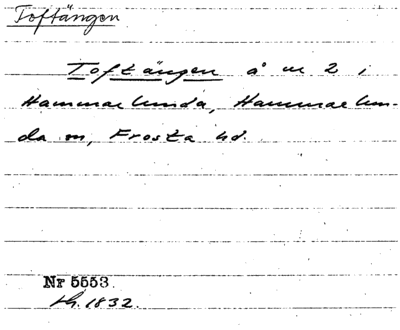 Toftängen
Toftängen å nr 2 i
Hammarlunda, Hammarlun-
da sn, Frosta hd.
Nr 5553.
1832.